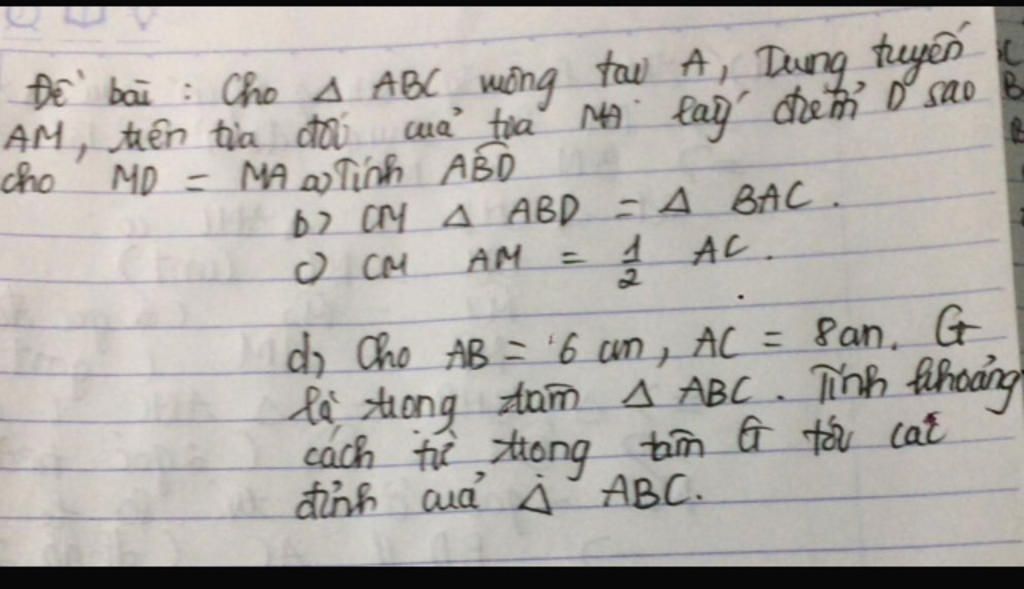 Đề bài : Cho Δ ABC vuông tại A, Trung tuyến
AM, trên tia đối của tia MA lấy điểm D sao
cho MD = MA a) Tính ABD
b) CM Δ ABD = Δ BAC.
c) CM AM = 1/2 AC.
d) Cho AB = 6 cm, AC = 8cm. G
là trọng tâm Δ ABC. Tính khoảng
cách từ trọng tâm G tới các
đỉnh của Δ ABC.